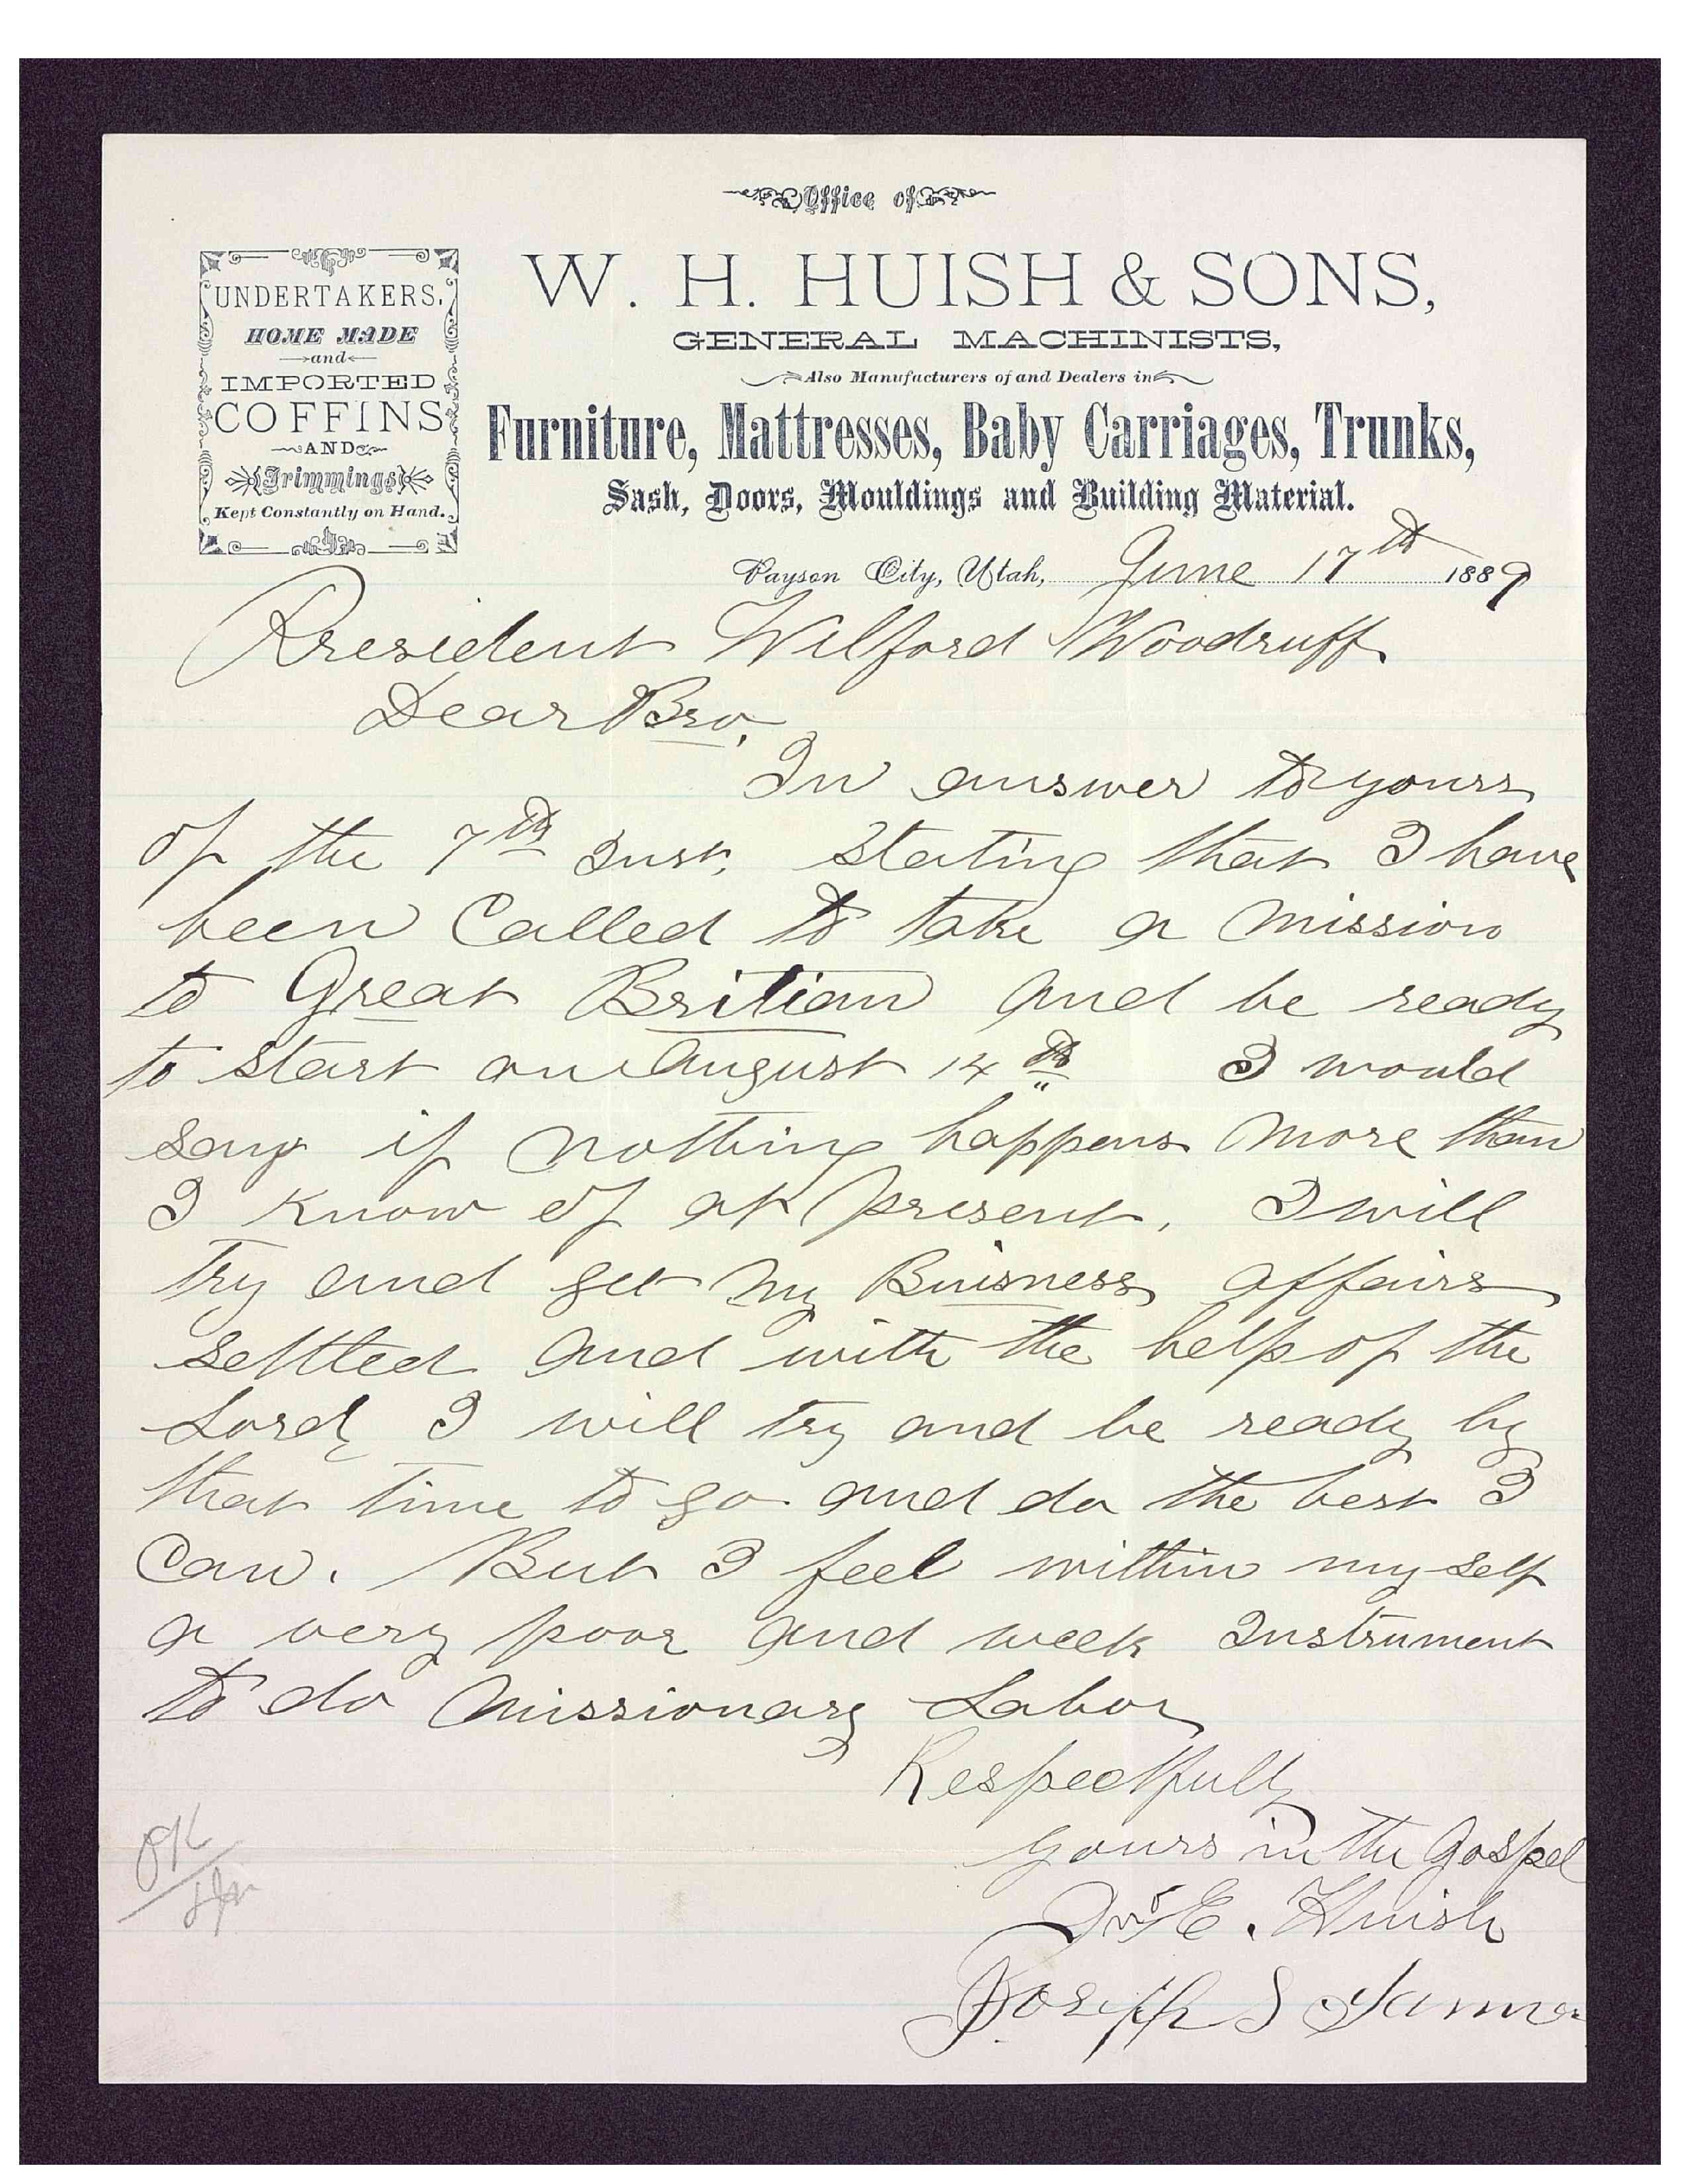 Office of
W. H. HUISH & SONS,
GENERAL MACHINISTS,
Also Manufacturers of and Dealers in
Furniture, Mattresses, Baby Carriages, Trunks,
Sash, Doors, Mouldings and Building Material.
UNDERTAKERS,
HOME MADE
and
IMPORTED
COFFINS
AND
Trimmings
Kept Constantly on Hand.
Payson City, Utah, June 17th 1889
President Wilford Woodruff
Dear Bro,
In answer to yours
of the 7th Inst, stating that I have
been Called to take a mission
to Great Britian and be ready
to start on August 14th I would
say if nothing happens more than
I know of at present, I will
try and get my Buisness affairs
settled and with the help of the
Lord, I will try and be ready by
that time to go and do the best I
Can. But I feel within my self
a very poor and week Instrument
to do Missionary Labor
Respectfully
yours in the Gospel
E. Huish
Joseph S Tanner
OK